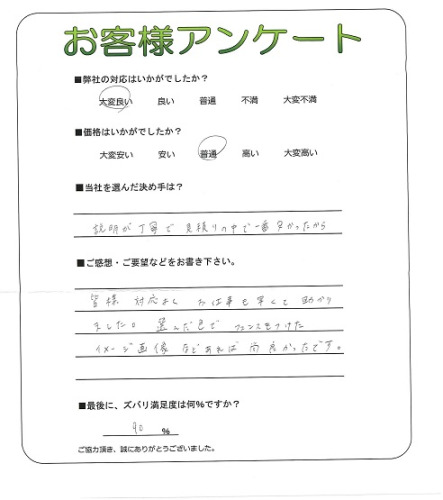 お客様アンケート
■弊社の対応はいかがでしたか？
大変良い 良い 普通 不満 大変不満
■価格はいかがでしたか？
大変安い 安い 普通 高い 大変高い
■当社を選んだ決め手は？
説明が丁寧で 見積りの中で一番安かったから
■ご感想・ご要望などをお書き下さい。
皆様 対応よく お仕事も早くて 助かり
ました。 選んだ色で フェンスもつけた
イメージ画像 などあれば 尚良かったです。
■最後に、ズバリ満足度は何％ですか？
90 ％
ご協力頂き、誠にありがとうございました。